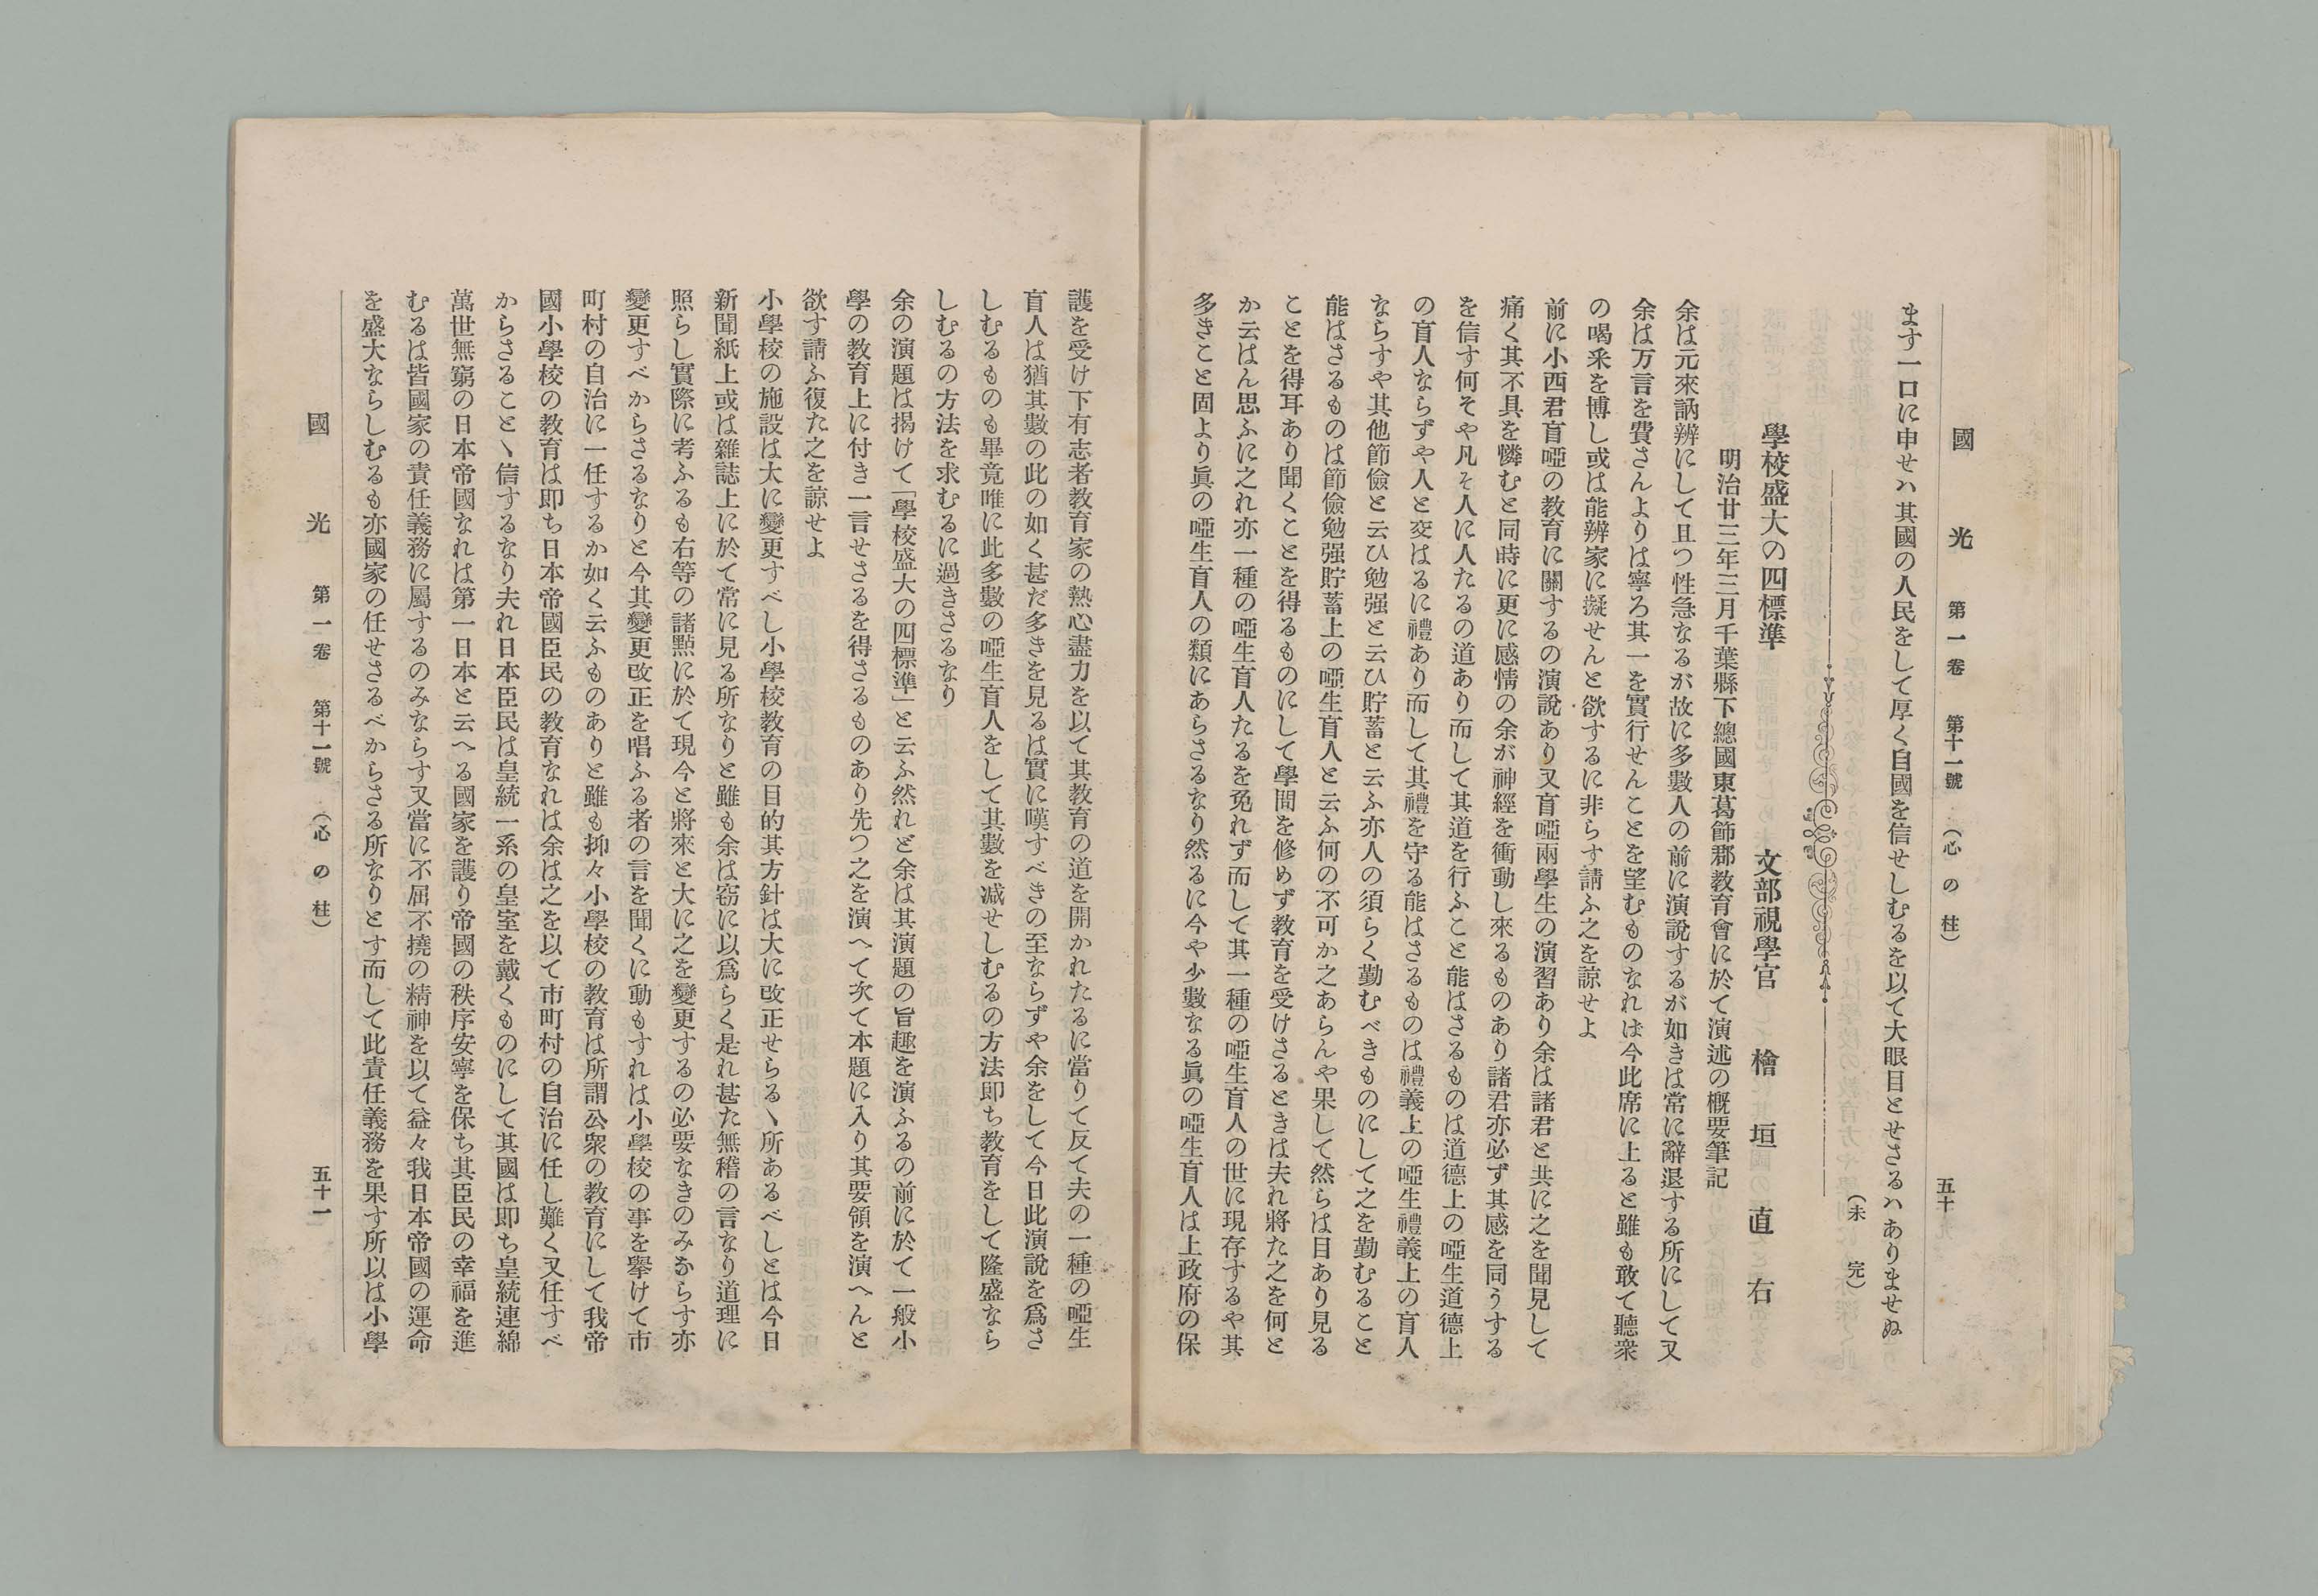 國光 第一卷 第十一號 (心の柱) 五十
ます一口に申せハ其國の人民をして厚く自國を信せしむるを以て大眼目とせさるハありませぬ
(未完)
學校盛大の四標準 文部視學官 檜垣直右
明治廿三年三月千葉縣下總國東葛飾郡教育會に於て演述の概要筆記
余は元來訥辨にして且つ性急なるが故に多數人の前に演說するが如きは常に辭退する所にして又
余は万言を費さんよりは寧ろ其一を實行せんことを望むものなれは今此席に上ると雖も敢て聽衆
の喝釆を博し或は能辨家に擬せんと欲するに非らす請ふ之を諒せよ
前に小西君盲啞の教育に關するの演說あり又盲啞兩學生の演習あり余は諸君と共に之を聞見して
痛く其不具を憐むと同時に更に感情の余が神經を衝動し來るものあり諸君亦必ず其感を同うする
を信す何そや凡そ人に人たるの道あり而して其道を行ふこと能はさるものは道德上の啞生道德上
の盲人ならずや人と交はるに禮あり而して其禮を守る能はさるものは禮義上の啞生禮義上の盲人
ならすや其他節儉と云ひ勉强と云ひ貯蓄と云ふ亦人の須らく勤むべきものにして之を勤むること
能はさるものは節儉勉强貯蓄上の啞生盲人と云ふ何の不可か之あらんや果して然らは目あり見る
ことを得耳あり聞くことを得るものにして學問を修めず教育を受けさるときは夫れ將た之を何と
か云はん思ふに之れ亦一種の啞生盲人たるを免れず而して其一種の啞生盲人の世に現存するや其
多きこと固より眞の啞生盲人の類にあらさるなり然るに今や少數なる眞の啞生盲人は上政府の保
護を受け下有志者教育家の熱心盡力を以て其教育の道を開かれたるに當りて反て夫の一種の啞生
盲人は猶其數の此の如く甚だ多きを見るは實に嘆すべきの至ならずや余をして今日此演說を爲さ
しむるものも畢竟唯に此多數の啞生盲人をして其數を減せしむるの方法即ち教育をして隆盛なら
しむるの方法を求むるに過きさるなり
余の演題は揭けて「學校盛大の四標準」と云ふ然れど余は其演題の旨趣を演ふるの前に於て一般小
學の教育上に付き一言せさるを得さるものあり先つ之を演へて次て本題に入り其要領を演へんと
欲す請ふ復た之を諒せよ
小學校の施設は大に變更すべし小學校教育の目的其方針は大に改正せらるゝ所あるべしとは今日
新聞紙上或は雜誌上に於て常に見る所なりと雖も余は窃に以爲らく是れ甚た無稽の言なり道理に
照らし實際に考ふるも右等の諸㸃に於て現今と將來と大に之を變更するの必要なきのみならす亦
變更すべからさるなりと今其變更改正を唱ふる者の言を聞くに動もすれは小學校の事を擧けて市
町村の自治に一任するか如く云ふものありと雖も抑々小學校の教育は所謂公衆の教育にして我帝
國小學校の教育は即ち日本帝國臣民の教育なれは余は之を以て市町村の自治に任し難く又任すべ
からさることゝ信するなり夫れ日本臣民は皇統一系の皇室を戴くものにして其國は即ち皇統連綿
萬世無窮の日本帝國なれは第一日本と云へる國家を護り帝國の秩序安寧を保ち其臣民の幸福を進
むるは皆國家の責任義務に屬するのみならす又當に不屈不撓の精神を以て益々我日本帝國の運命
を盛大ならしむるも亦國家の任せさるべからさる所なりとす而して此責任義務を果す所以は小學
國光 第一卷 第十一號 (心の柱) 五十一